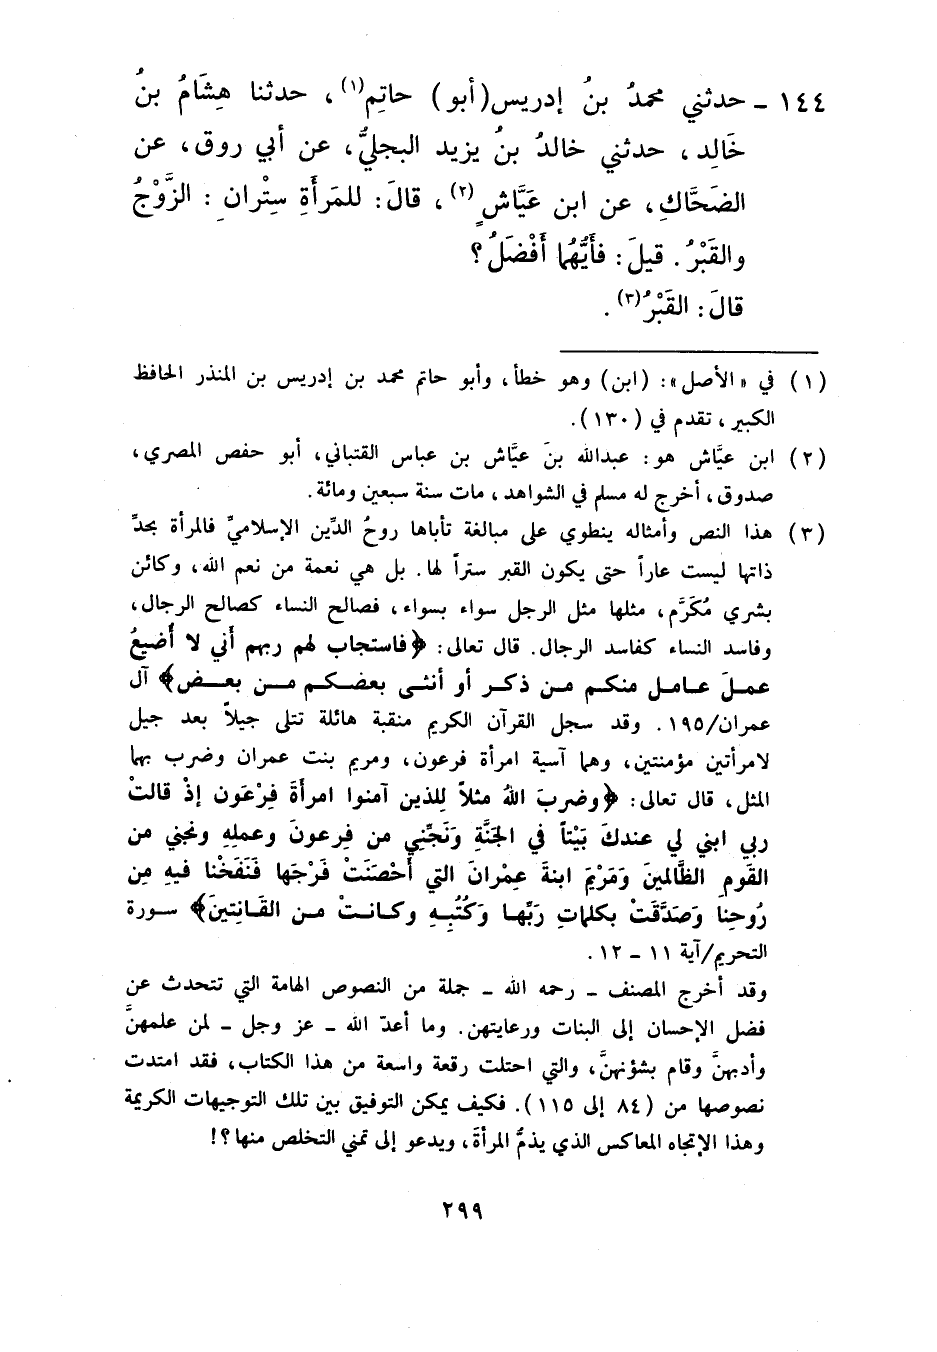 ١٤٤ ـ حدثني محمدُ بنُ إدريس(أبو) حاتِم(١)، حدثنا هِشَامُ بنُ
خَالِد، حدثني خالدُ بنُ يزيد البجليُّ، عن أبي روق، عن
الضَحَّاكِ، عن ابن عَيَّاشٍ(٢)، قالَ: للمَرأَةِ سِتْران : الزَّوْجُ
والقَبْرُ. قيلَ: فأَيُّهُما أَفْضَلُ؟
قالَ: القَبْرُ(٣).
(١) في «الأصل»: (ابن) وهو خطأ، وأبو حاتم محمد بن إدريس بن المنذر الحافظ
الكبير، تقدم في (١٣٠).
(٢) ابن عيَّاش هو: عبدالله بنَ عيَّاش بن عباس القتباني، أبو حفص المصري،
صدوق، أخرج له مسلم في الشواهد، مات سنة سبعين ومائة.
(٣) هذا النص وأمثاله ينطوي على مبالغة تأباها روحُ الدِّين الإسلاميِّ فالمرأة بحدِّ
ذاتها ليست عاراً حتى يكون القبر ستراً لها. بل هي نعمة من نعم الله، وكائن
بشري مُكَرَّم، مثلها مثل الرجل سواء بسواء، فصالح النساء كصالح الرجال،
وفاسد النساء كفاسد الرجال. قال تعالى: ﴿فاستجاب لهم ربهم أني لا أُضيعُ
عملَ عامل منكم من ذكر أو أنثى بعضكم من بعض﴾ آل
عمران/١٩٥. وقد سجل القرآن الكريم منقبة هائلة تتلى جيلاً بعد جيل
لامرأتين مؤمنتين، وهما آسية امرأة فرعون، ومريم بنت عمران وضرب بهما
المثل، قال تعالى: ﴿وضربَ اللهُ مثلاً لِلذين آمنوا امرأةَ فِرْعَون إذْ قالتْ
ربي ابني لي عندكَ بَيْتاً في الجَنَّةِ وَنَجِّنِي من فِرعونَ وعملِهِ ونجني من
القَومِ الظَّالمينَ وَمَرْيَمَ ابنةَ عِمْرانَ التي أَحْصَنَتْ فَرْجَها فَنَفَخْنا فيهِ مِن
رُوحِنا وَصَدَّقَتْ بكلماتِ رَبِّها وَكُتُبِهِ وكانتْ من القَانِتينَ﴾ سورة
التحريم/آية ١١ ـ ١٢.
وقد أخرج المصنف ـ رحمه الله ـ جملة من النصوص الهامة التي تتحدث عن
فضل الإحسان إلى البنات ورعايتهن. وما أعدّ الله ـ عز وجل ـ لمن علمهنَّ
وأدبهنَّ وقام بشؤنهنَّ، والتي احتلت رقعة واسعة من هذا الكتاب، فقد امتدت
نصوصها من (٨٤ إلى ١١٥). فكيف يمكن التوفيق بين تلك التوجيهات الكريمة
وهذا الإتجاه المعاكس الذي يذمُّ المرأةَ، ويدعو إلى تمني التخلص منها؟!
٢٩٩